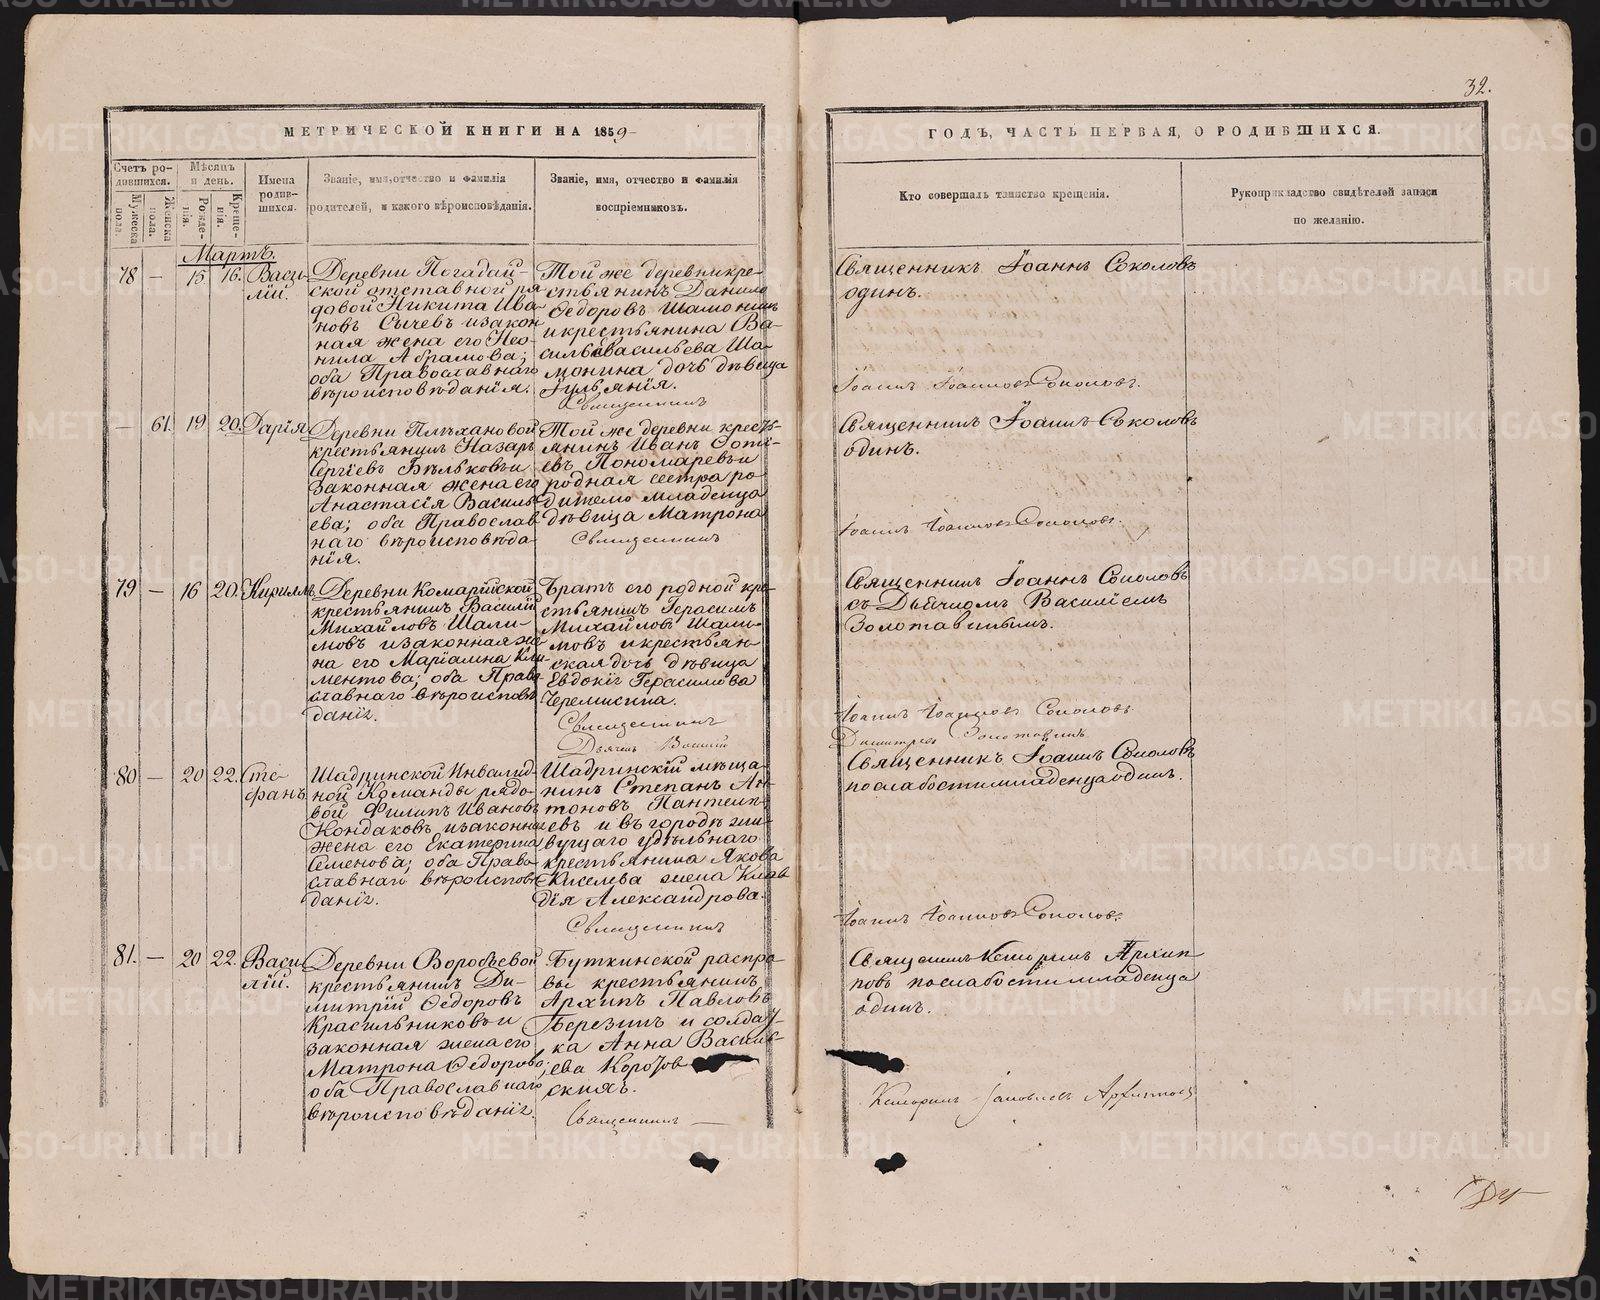 32.
МЕТРИЧЕСКОЙ КНИГИ НА 1859
ГОДЪ, ЧАСТЬ ПЕРВАЯ, О РОДИВШИХСЯ.
Счетъ родившихся.
Мужеска пола.
Женска пола.
Мѣсяцъ и день.
Рожденія.
Крещенія.
Имена родившихся.
Званіе, имя, отчество и фамилія
родителей, и какого вѣроисповѣданія.
Званіе, имя, отчество и фамилія
воспріемниковъ.
Кто совершалъ таинство крещенія.
Рукоприкладство свидѣтелей записи
по желанію.
Мартъ.
78 — 15 16. Васи-
лій.
Деревни Погадай-
ской отставной ря
довой Никита Ива-
новъ Сычевъ и закон
ная жена его Нео-
нила Абрамова;
оба Православнаго
вѣроисповѣданія.
Той же деревни кре-
стьянинъ Данило
Ѳедоровъ Шамонинъ
и крестьянина Ва-
силья Васильева Ша-
монина дочь дѣвица
Іульянія.
Священникъ
Священникъ Іоаннъ Соколовъ
одинъ.
Іоаннъ Іоанновъ Соколовъ.
— 61. 19 20. Дарія
Деревни Плѣхановой
крестьянинъ Назаръ
Сергіевъ Бѣльковъ и
законная жена его
Анастасія Василь-
ева; оба Православ
наго вѣроисповѣда-
нія.
Той же деревни кресть-
янинъ Иванъ Соті-
евъ Пономаревъ и
родная сестра ро-
дителю младенца
дѣвица Матрона
Священникъ
Священникъ Іоаннъ Соколовъ
одинъ.
Іоаннъ Іоанновъ Соколовъ.
79 — 16 20. Кириллъ
Деревни Комарійской
крестьянинъ Василій
Михайловъ Шали-
мовъ и законная же
на его Маріамна Кли-
ментова; оба Право
славнаго вѣроисповѣ
данія.
Братъ его родной кре-
стьянинъ Герасимъ
Михайловъ Шали-
мовъ и крестьян-
ская дочь дѣвица
Евдокія Герасимова
Черемисина.
Священникъ
Дьячекъ Василій
Священникъ Іоаннъ Соколовъ
съ Дьячкомъ Василіемъ
Золотавинымъ.
Іоаннъ Іоанновъ Соколовъ
Димитріевъ Золотавинъ
80 — 20 22. Сте-
фанъ
Шадринской Инвалид-
ной Команды рядо-
вой Филипъ Ивановъ
Кондаковъ и законная
жена его Екатерина
Семенова; оба Право-
славнаго вѣроисповѣ
данія.
Шадринскій мѣща-
нинъ Степанъ Ан-
тоновъ Пантелѣ-
евъ и въ городѣ жи-
вущаго удѣльнаго
крестьянина Якова
Киселева жена Клав
дія Александрова.
Священникъ
Священникъ Іоаннъ Соколовъ
по слабости младенца одинъ.
Іоаннъ Іоанновъ Соколовъ.
81. — 20 22. Васи-
лій.
Деревни Воробьевой
крестьянинъ Ди-
митрій Ѳедоровъ
Красильниковъ и
законная жена его
Матрона Ѳедорова;
оба Православнаго
вѣроисповѣданія.
Буткинской распра-
вы крестьянинъ
Архипъ Павловъ
Березинъ и солдат-
ка Анна Василь-
ева
скихъ.
Священникъ
Священникъ Архип-
повъ по слабости младенца
одинъ.
Архиповъ